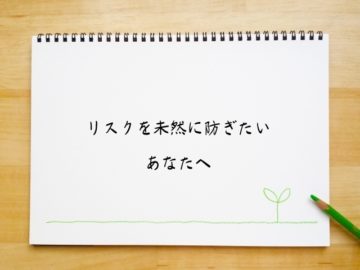 リスクを未然に防ぎたい
あなたへ